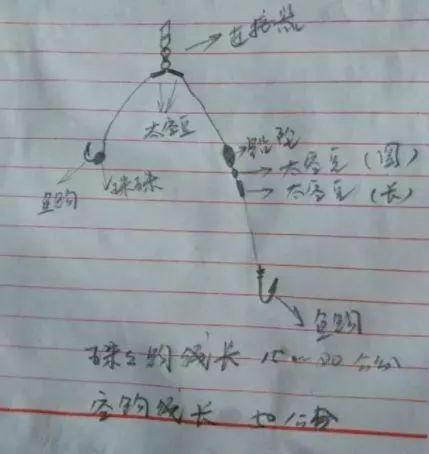 连接器
太空豆
铅陀
太空豆(圆)
太空豆(长)
鱼钩
珠
鱼钩
钩线长 15~20公分
空钩线长 50公分